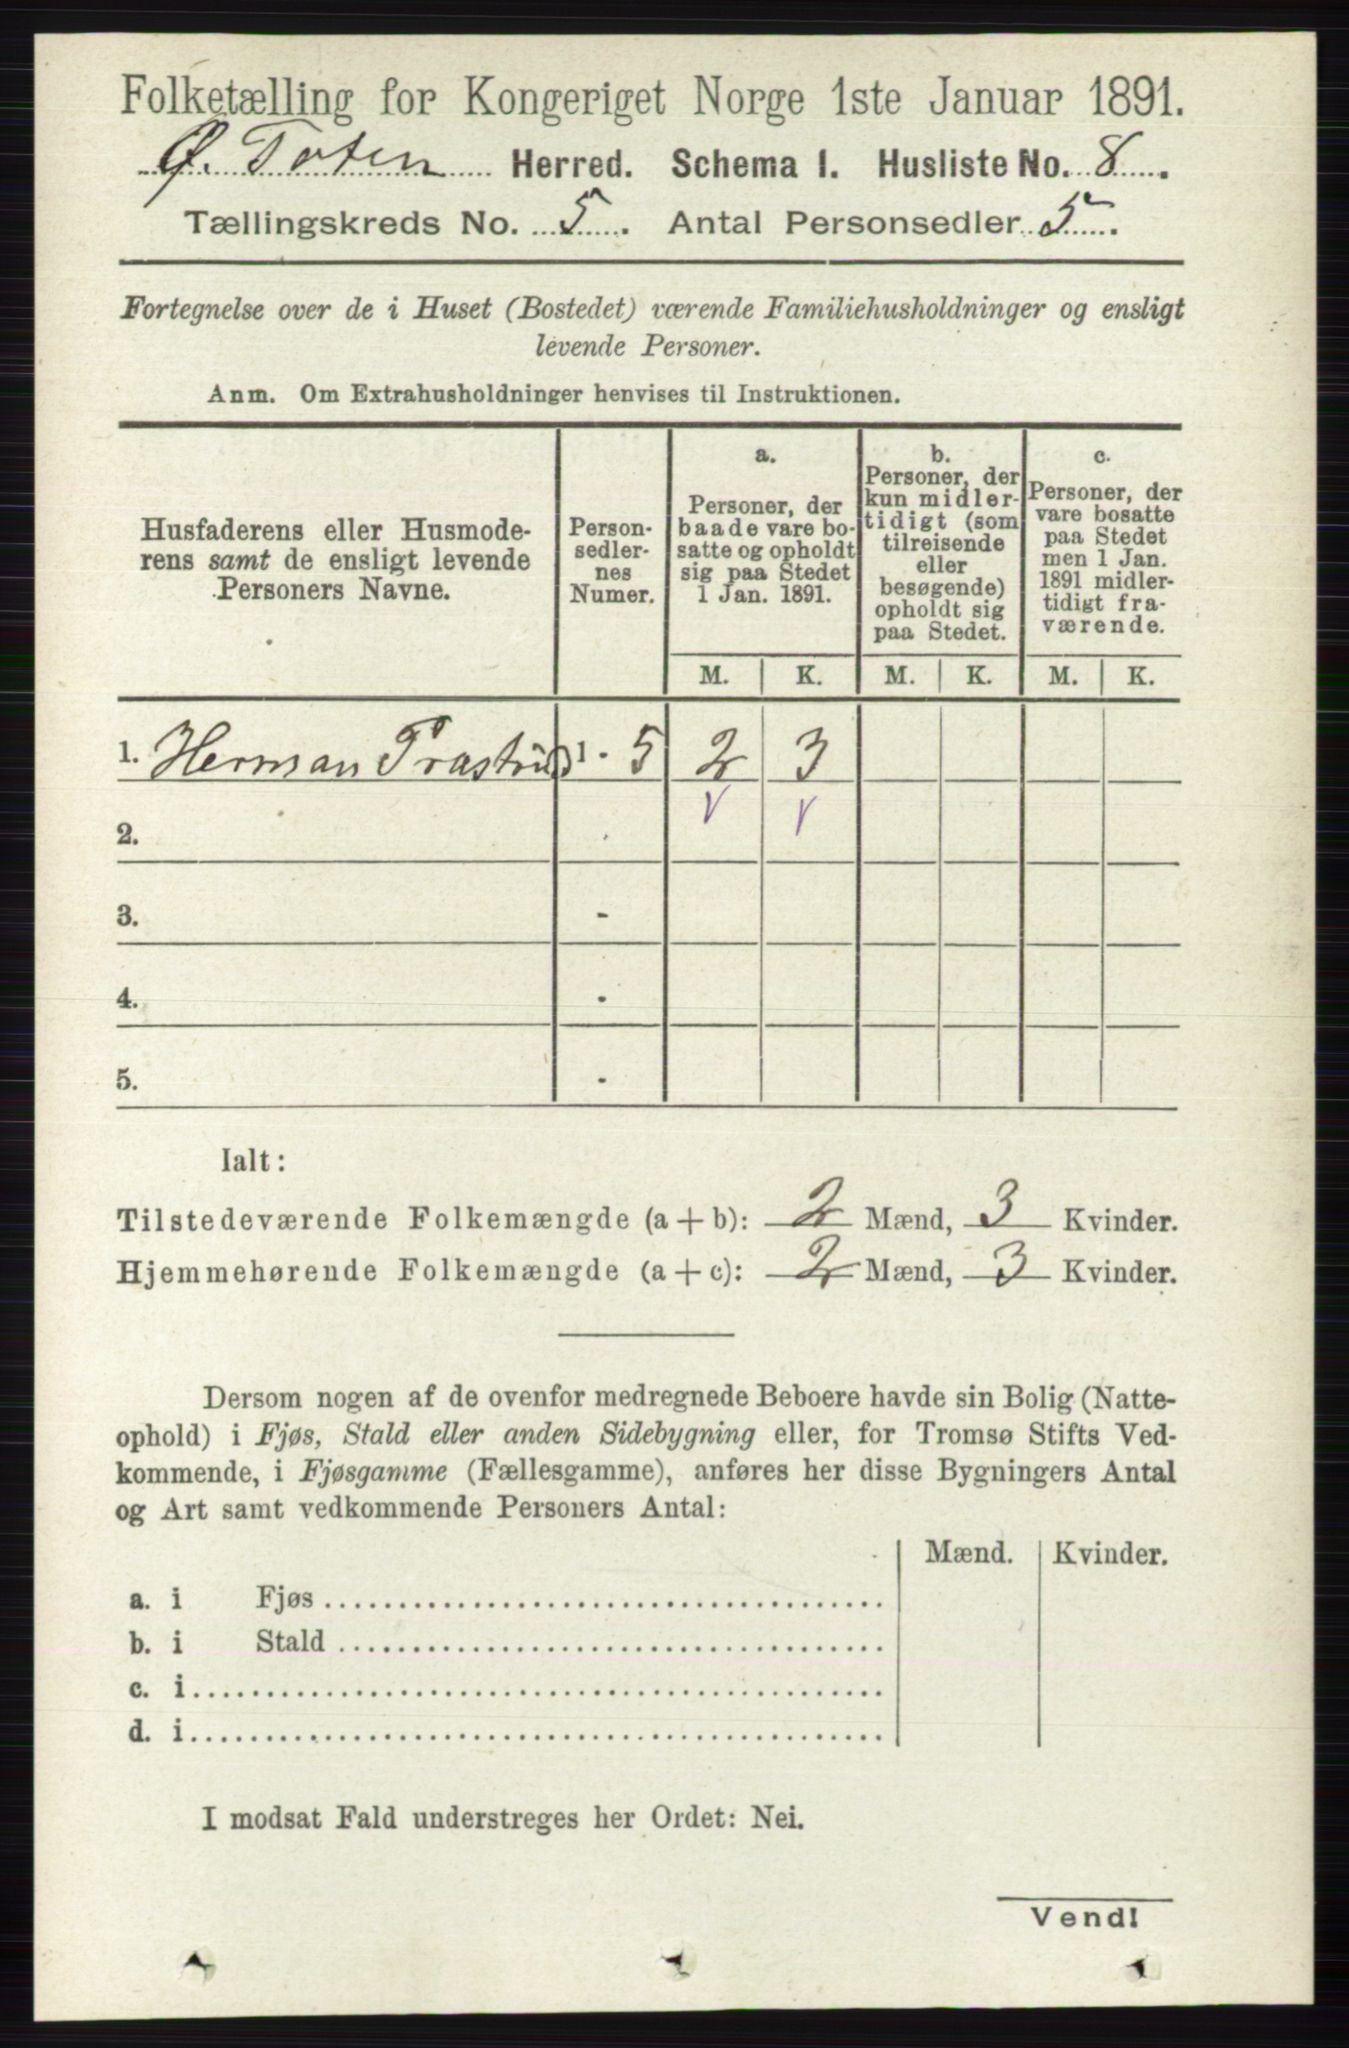 Folketælling for Kongeriget Norge 1ste Januar 1891.
Ø. Toten Herred. Schema 1. Husliste No. 8.
Tællingskreds No. 5. Antal Personsedler 5.
Fortegnelse over de i Huset (Bostedet) værende Familiehusholdninger og ensligt
levende Personer.
Anm. Om Extrahusholdninger henvises til Instruktionen.
Husfaderens eller Husmode-
rens samt de ensligt levende
Personers Navne.
Person-
sedler-
nes
Numer.
a.
Personer, der
baade vare bo-
satte og opholdt
sig paa Stedet
1 Jan. 1891.
b.
Personer, der
kun midler-
tidigt (som
tilreisende
eller
besøgende)
opholdt sig
paa Stedet.
c.
Personer, der
vare bosatte
paa Stedet
men 1 Jan.
1891 midler-
tidigt fra-
værende.
M. K. M. K. M. K.
1. Herman Prastrud 1 - 5 2 3
2.
3. -
4. -
5. -
Ialt:
Tilstedeværende Folkemængde (a + b): 2 Mænd, 3 Kvinder.
Hjemmehørende Folkemængde (a + c): 2 Mænd, 3 Kvinder.
Dersom nogen af de ovenfor medregnede Beboere havde sin Bolig (Natte-
ophold) i Fjøs, Stald eller anden Sidebygning eller, for Tromsø Stifts Ved-
kommende, i Fjøsgamme (Fællesgamme), anføres her disse Bygningers Antal
og Art samt vedkommende Personers Antal:
Mænd. Kvinder.
a. i Fjøs
b. i Stald
c. i
d. i
I modsat Fald understreges her Ordet: Nei.
Vend!